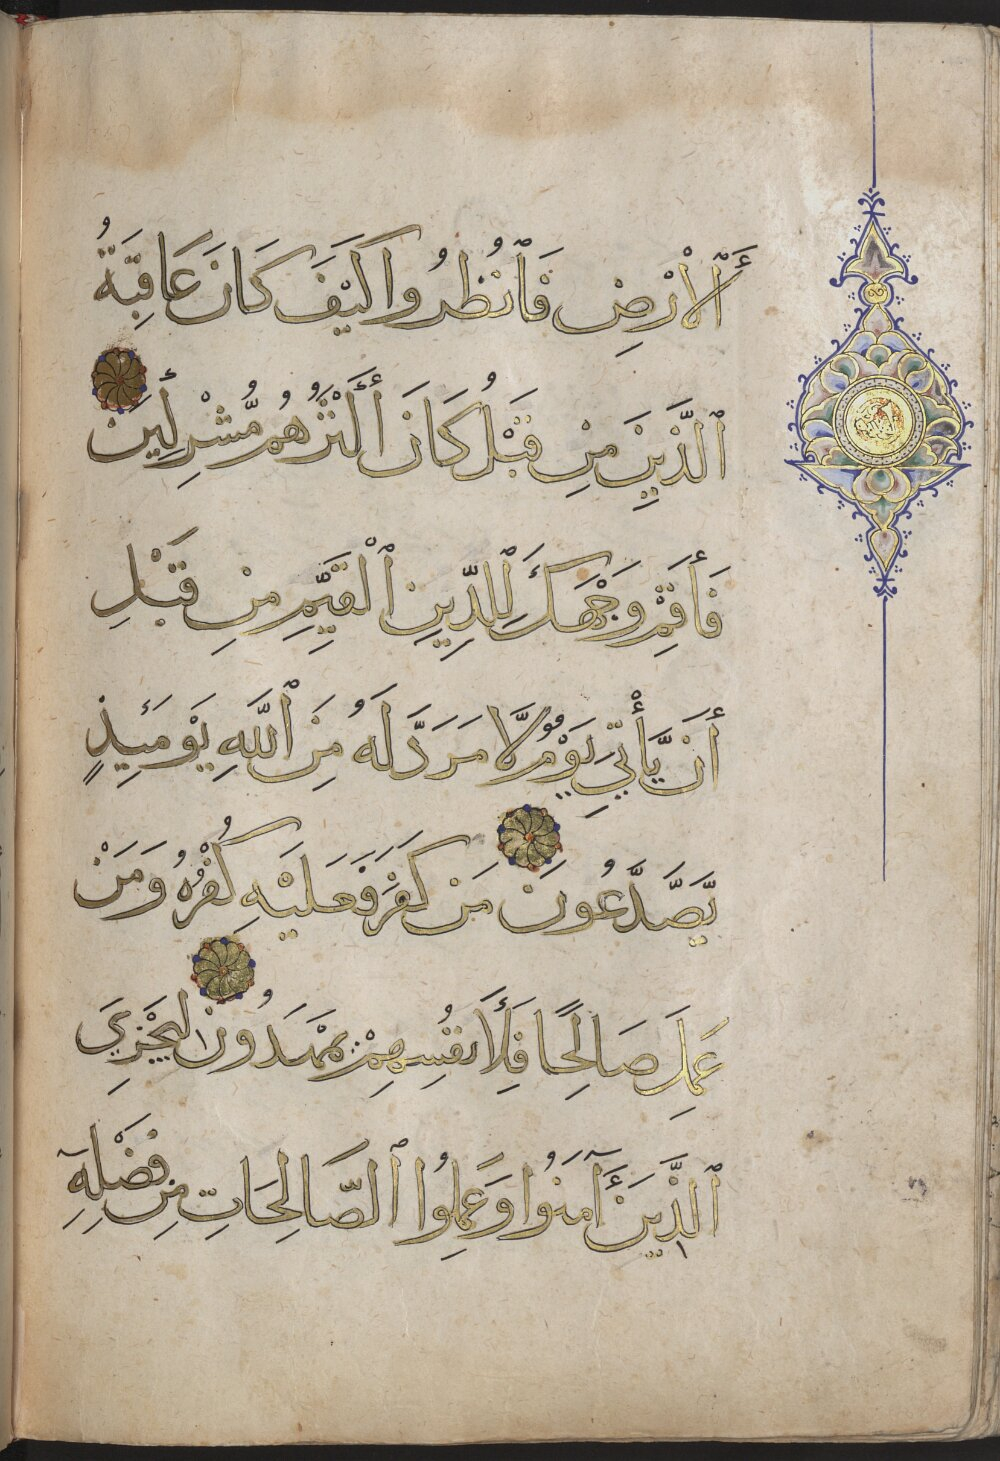 ٱلْأَرْضِ فَٱنظُرُوا كَيْفَ كَانَ عَاقِبَةُ
ٱلَّذِينَ مِن قَبْلُ كَانَ أَكْثَرُهُم مُّشْرِكِينَ
فَأَقِمْ وَجْهَكَ لِلدِّينِ ٱلْقَيِّمِ مِن قَبْلِ
أَن يَّأْتِيَ يَوْمٌ لَّا مَرَدَّ لَهُ مِنَ ٱللَّهِ يَوْمَئِذٍ
يَّصَّدَّعُونَ مَن كَفَرَ فَعَلَيْهِ كُفْرُهُ وَمَنْ
عَمِلَ صَالِحًا فَلِأَنفُسِهِمْ يَمْهَدُونَ لِيَجْزِيَ
ٱلَّذِينَ آمَنُوا وَعَمِلُوا ٱلصَّالِحَاتِ مِن فَضْلِهِ